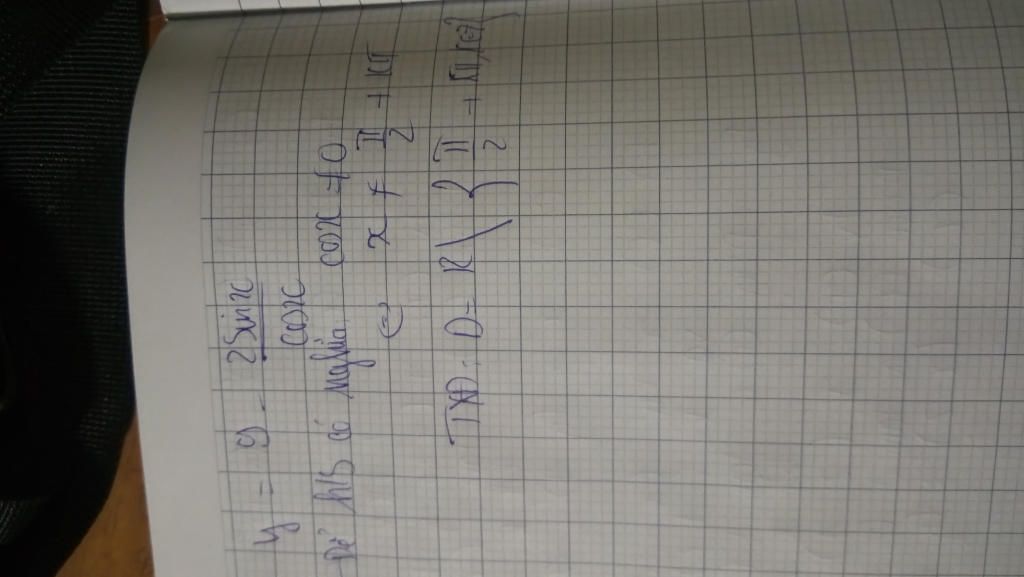 y = 9 - 2sinx/cosx
Để h/s có nghĩa. cosx ≠ 0
⇔ x ≠ π/2 + kπ
TXĐ: D = R \ { π/2 + kπ, k∈Z }